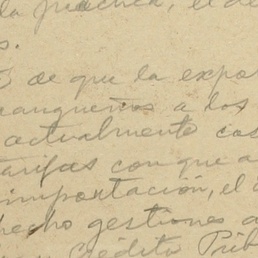 la práctica, el de
s.
3 de que la expo
angueños a los
actualmente cos
tarifas con que a
importación, el
hecho gestiones a
Crédito Púb